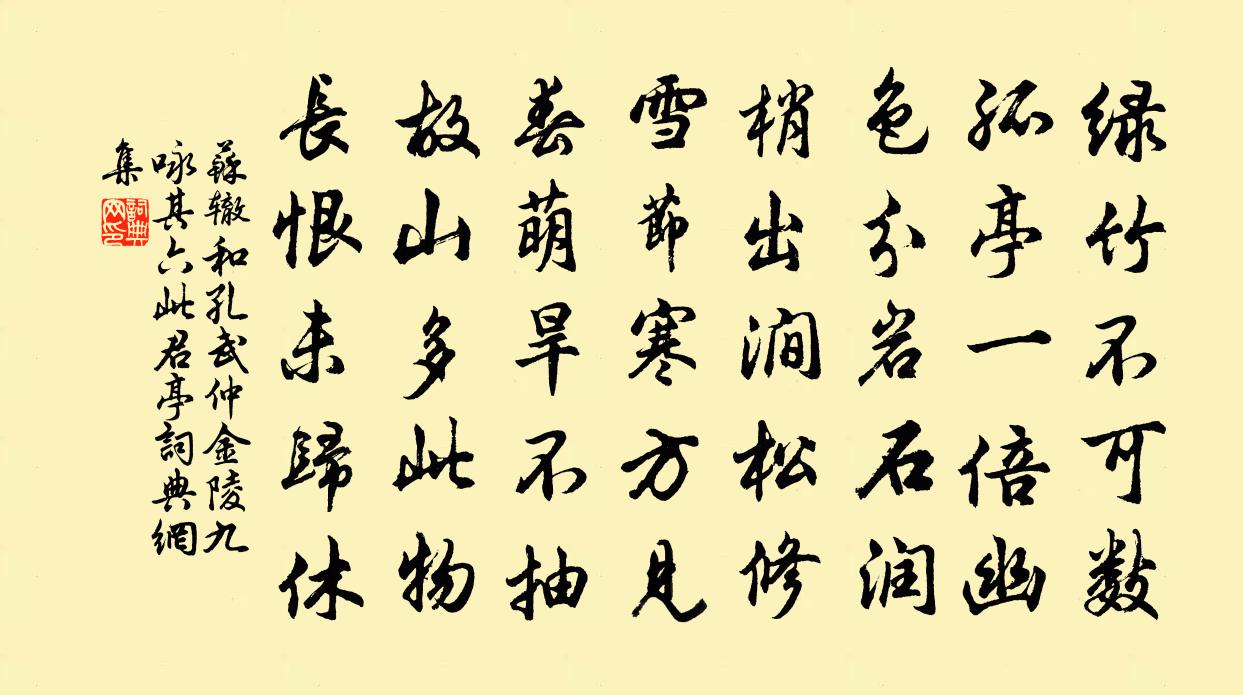 绿竹不可数
孤亭一倍幽
色分岩石润
梢出涧松修
雪节寒方见
春萌旱不抽
故山多此物
長恨未歸休
蘇辙和孔武仲金陵九
咏其六此君亭詞典網
集
詞典网